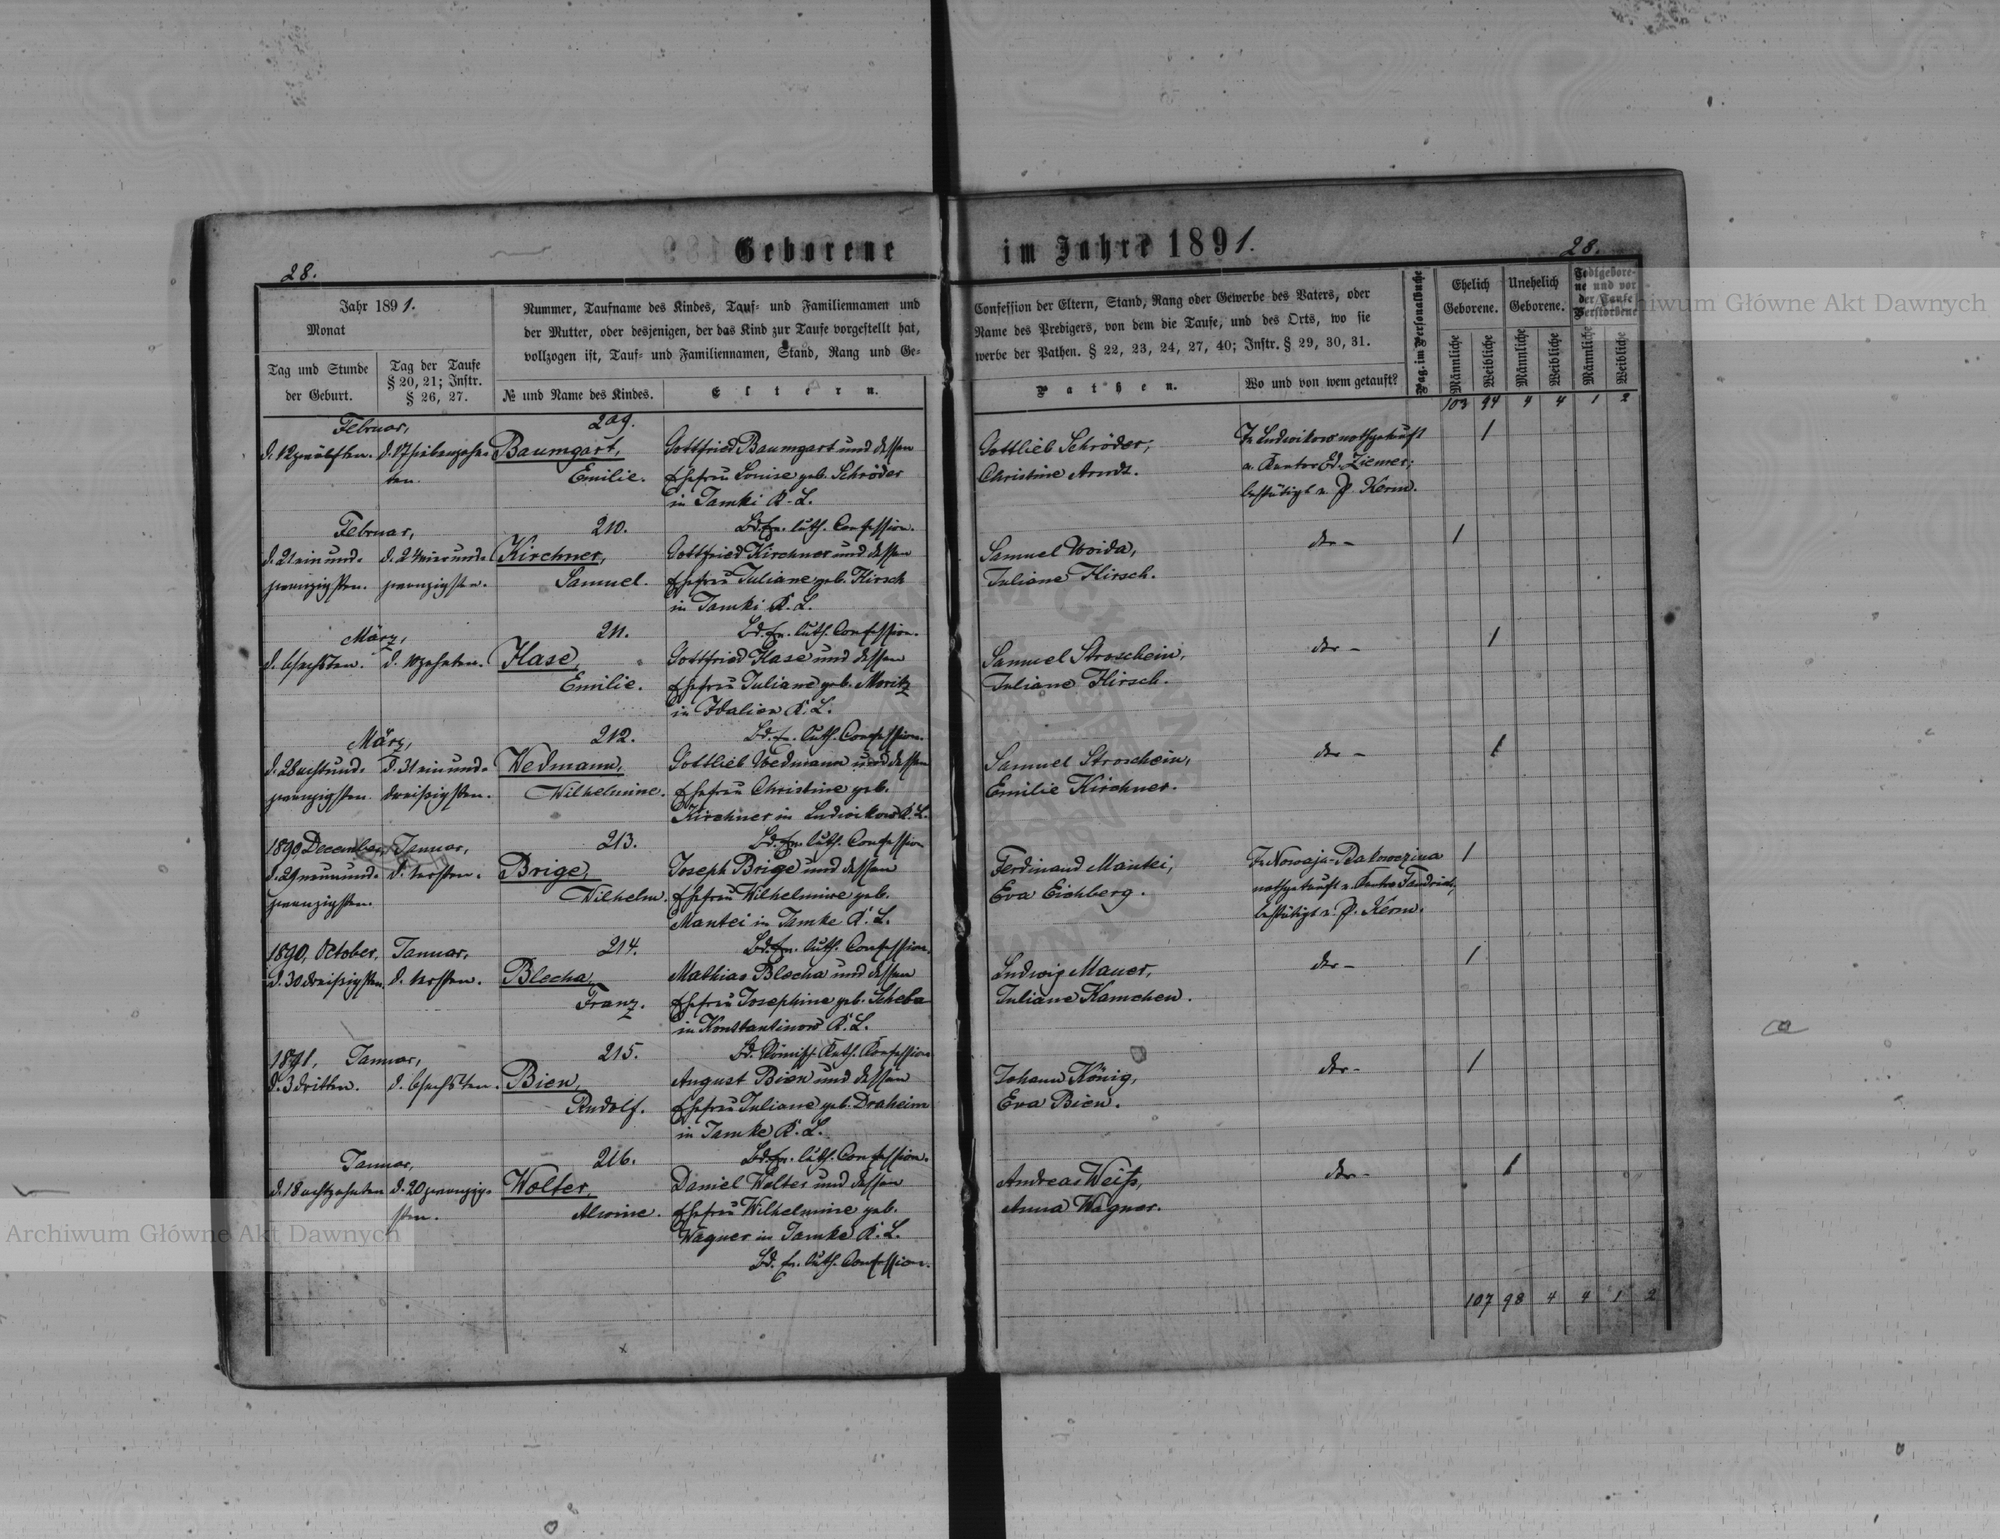 Geborene im Jahre 1891.
28.
28.
Jahr 1891.
Monat
Tag und Stunde
der Geburt.
Tag der Taufe
§ 20, 21; Instr.
§ 26, 27.
Nummer, Taufname des Kindes, Tauf- und Familiennamen und
der Mutter, oder desjenigen, der das Kind zur Taufe vorgestellt hat,
vollzogen ist, Tauf- und Familiennamen, Stand, Rang und Ge-
№ und Name des Kindes.
Eltern.
Confession der Eltern, Stand, Rang oder Gewerbe des Vaters, oder
Name des Predigers, von dem die Taufe, und des Orts, wo sie
werbe der Pathen. § 22, 23, 24, 27, 40; Instr. § 29, 30, 31.
Pathen.
Wo und von wem getauft?
Pag. im Personalbuche
Ehelich
Geborene.
Unehelich
Geborene.
Todtgebore-
ne und vor
der Taufe
Verstorbene
Männliche
Weibliche
Männliche
Weibliche
Männliche
Weibliche
103 94 4 4 1 2
Februar,
209.
d. 12 zwölften. d. 17 siebenzehn-
ten.
Baumgart,
Emilie.
Gottfried Baumgart und dessen
Ehefrau Louise geb. Schröder
in Tamki K. L.
Bd. Ev. luth. Confession.
Gottlieb Schröder,
Christine Arndt.
In Ludwikow nothgetauft
v. Kantor Ed. Ziemer;
bestätigt v. P. Kerm.
1
Februar,
210.
d. 21 ein und- d. 24 vier und-
zwanzigsten. zwanzigsten.
Kirchner,
Samuel.
Gottfried Kirchner und dessen
Ehefrau Juliane geb. Hirsch
in Tamki K. L.
Bd. Ev. luth. Confession.
Samuel Woida,
Juliane Hirsch.
der –
1
März,
211.
d. 6 sechsten. d. 10 zehnten.
Hase,
Emilie.
Gottfried Hase und dessen
Ehefrau Juliane geb. Moritz
in Idalien K. L.
Bd. Ev. luth. Confession.
Samuel Stroschein,
Juliane Hirsch.
der –
1
März,
212.
d. 28 acht und- d. 31 ein und-
zwanzigsten. dreißigsten.
Wedmann,
Wilhelmine.
Gottlieb Wedmann und dessen
Ehefrau Christine geb.
Kirchner in Ludwikow K. L.
Bd. Ev. luth. Confession
Samuel Stroschein,
Emilie Kirchner.
der –
1
1890 December, Januar,
213.
d. 29 neun und- d. 1 ersten.
zwanzigsten.
Brige,
Wilhelm.
Joseph Brige und dessen
Ehefrau Wilhelmine geb.
Mantei in Tamke K. L.
Bd. Ev. luth. Confession.
Ferdinand Manki,
Eva Eichberg.
In Nowaja-
nothgetauft v. Kantor
bestätigt v. P. Kerm.
1
1890, October, Januar,
214.
d. 30 dreißigsten. d. 1 ersten.
Blecha,
Franz.
Mathias Blecha und dessen
Ehefrau Josephine geb. Scheba
in Konstantinow K. L.
Bd. Römisch Kath. Confession
Ludwig Mauer,
Juliane Kamchen.
der –
1
1891, Januar,
215.
d. 3 dritten. d. 6 sechsten.
Bien,
Rudolf.
August Bien und dessen
Ehefrau Juliane geb. Draheim
in Tamke K. L.
Bd. Ev. luth. Confession.
Johann König,
Eva Bien.
der –
1
Januar,
216.
d. 18 achtzehnten d. 20 zwanzig-
sten.
Wolter,
Alwine.
Daniel Wolter und dessen
Ehefrau Wilhelmine geb.
Wagner in Tamke K. L.
Bd. Ev. luth. Confession.
Andreas Weiß,
Anna Wagner.
der –
1
107 98 4 4 1 2
Archiwum Główne Akt Dawnych
Archiwum Główne Akt Dawnych